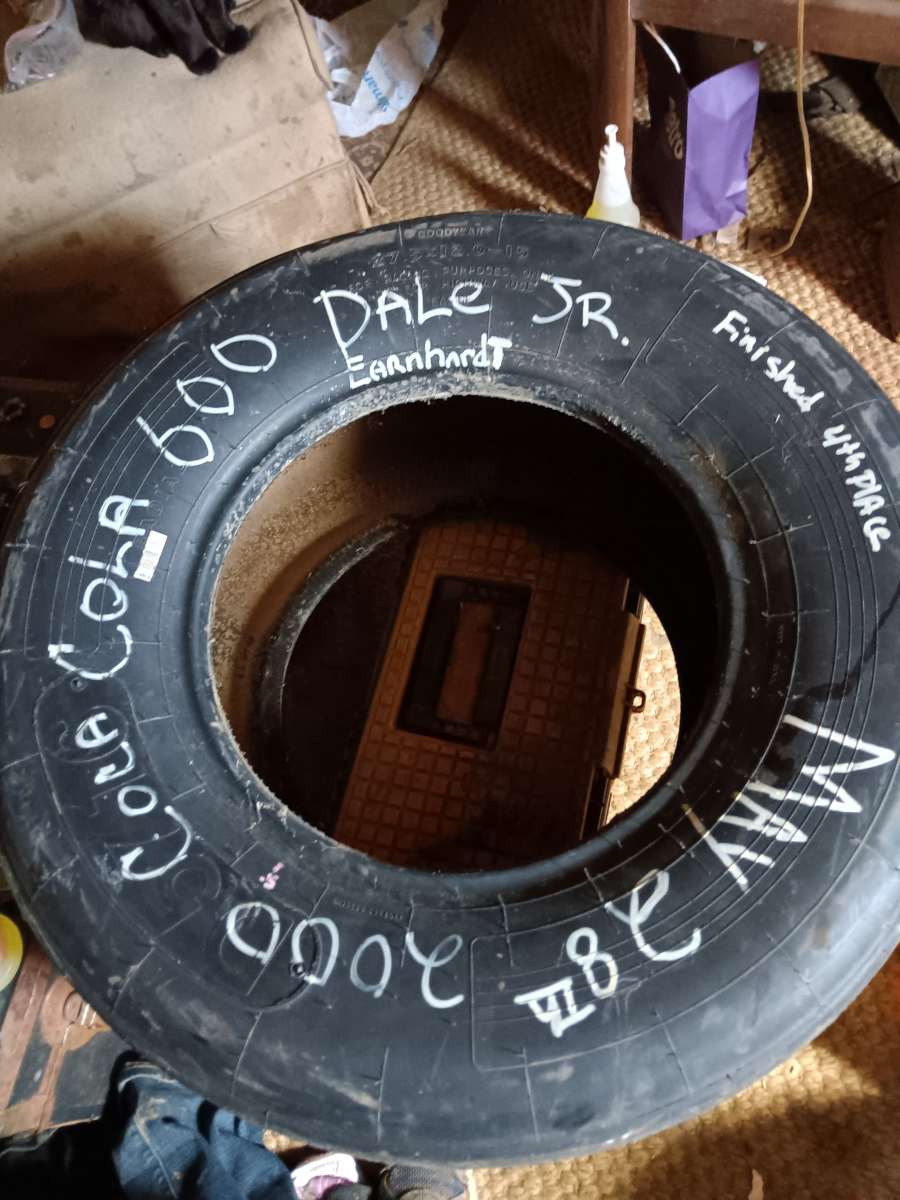 GOODYEAR
27.5x12.0-15
DALE JR.
EARnhardT
Finished 4th PlACE
MAY 28TH 2000
COCA COLA 600